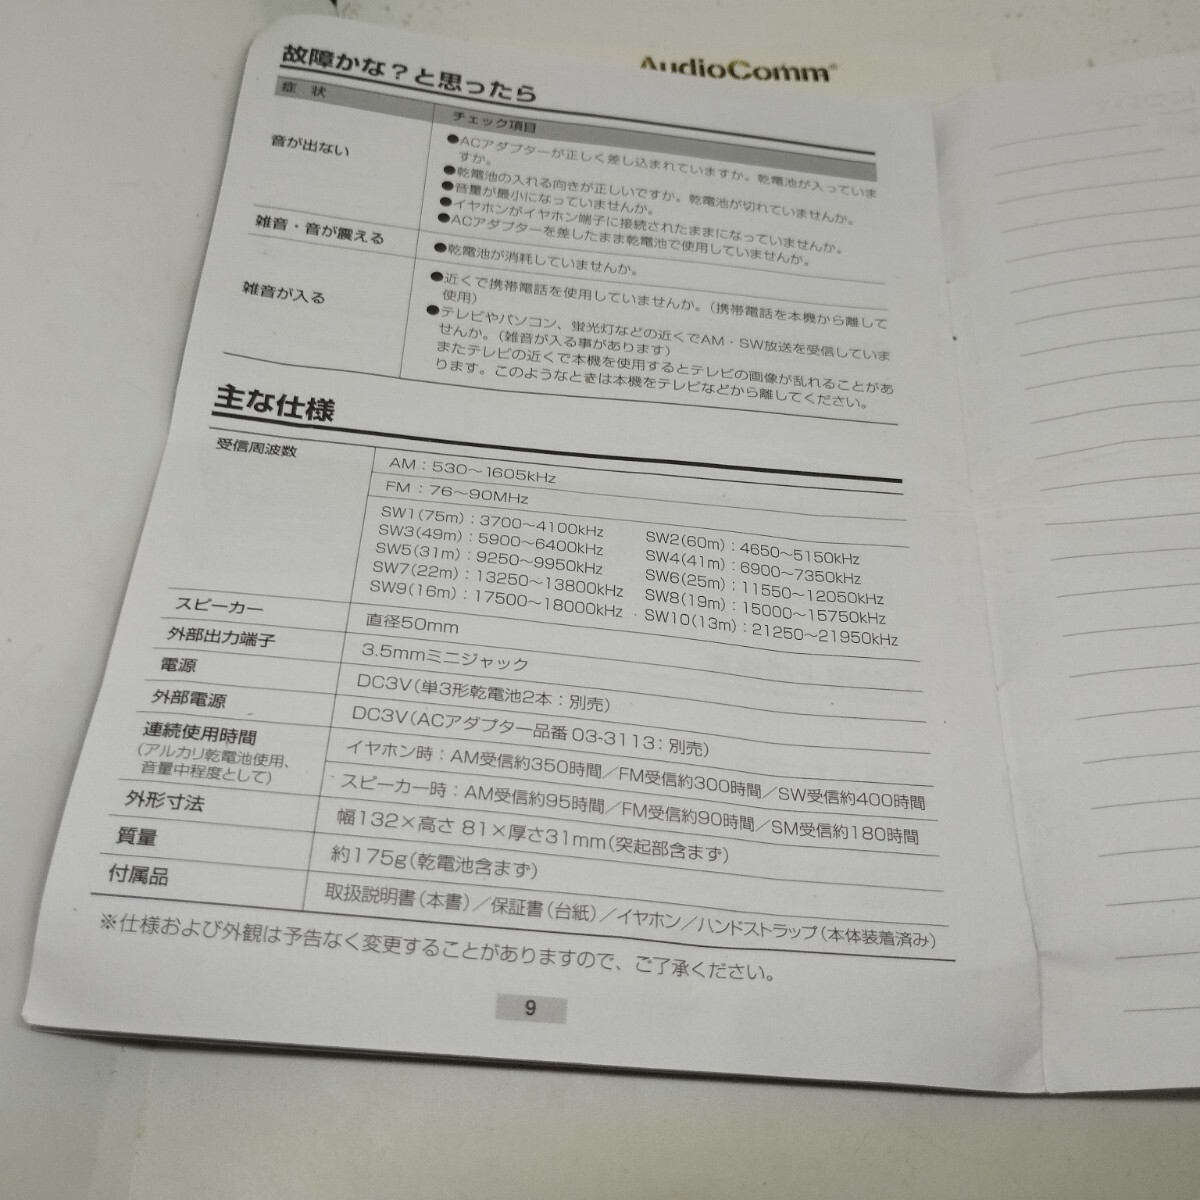 AudioComm®
故障かな？と思ったら
症 状
チェック項目
音が出ない
●ACアダプターが正しく差し込まれていますか。乾電池が入っていま
すか。
●乾電池の入れる向きが正しいですか。乾電池が切れていませんか。
●音量が最小になっていませんか。
●イヤホンがイヤホン端子に接続されたままになっていませんか。
●ACアダプターを差したまま乾電池で使用していませんか。
雑音・音が震える
●乾電池が消耗していませんか。
雑音が入る
●近くで携帯電話を使用していませんか。(携帯電話を本機から離して
使用)
●テレビやパソコン、蛍光灯などの近くでAM・SW放送を受信していま
せんか。(雑音が入る事があります)
またテレビの近くで本機を使用するとテレビの画像が乱れることがあ
ります。このようなときは本機をテレビなどから離してください。
主な仕様
受信周波数
AM：530～1605kHz
FM：76～90MHz
SW1(75m)：3700～4100kHz SW2(60m)：4650～5150kHz
SW3(49m)：5900～6400kHz SW4(41m)：6900～7350kHz
SW5(31m)：9250～9950kHz SW6(25m)：11550～12050kHz
SW7(22m)：13250～13800kHz SW8(19m)：15000～15750kHz
SW9(16m)：17500～18000kHz SW10(13m)：21250～21950kHz
スピーカー 直径50mm
外部出力端子 3.5mmミニジャック
電源 DC3V(単3形乾電池2本：別売)
外部電源 DC3V(ACアダプター品番 03-3113：別売)
連続使用時間
(アルカリ乾電池使用、
音量中程度として)
イヤホン時：AM受信約350時間／FM受信約300時間／SW受信約400時間
スピーカー時：AM受信約95時間／FM受信約90時間／SM受信約180時間
外形寸法 幅132×高さ 81×厚さ31mm(突起部含まず)
質量 約175g(乾電池含まず)
付属品 取扱説明書(本書)／保証書(台紙)／イヤホン／ハンドストラップ(本体装着済み)
※仕様および外観は予告なく変更することがありますので、ご了承ください。
9